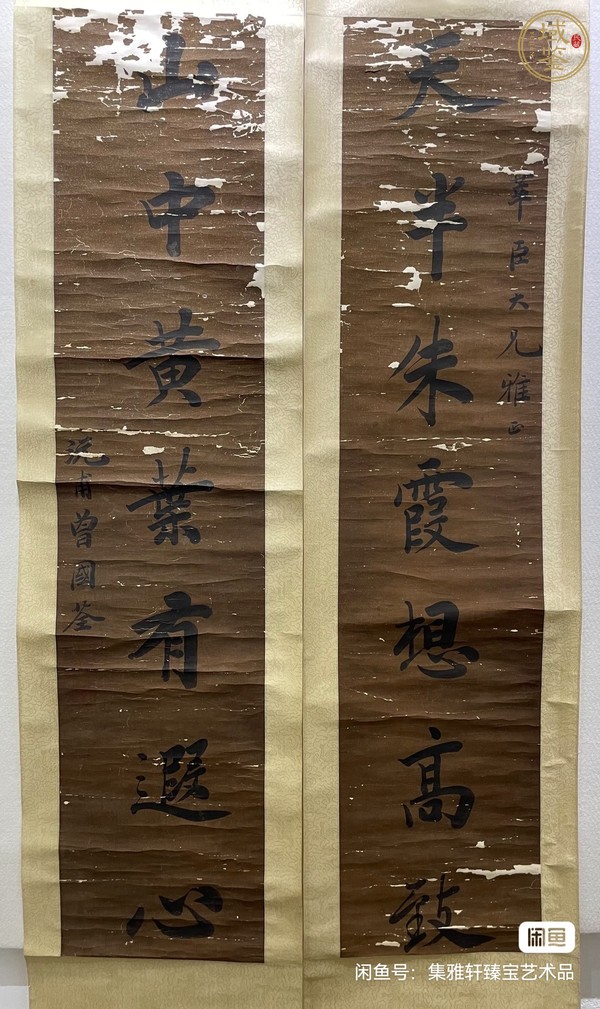 莘臣大兄雅正
天半朱霞想高致
山中黄葉有遐心
沅甫曾國荃
域鉴
闲鱼
闲鱼号：集雅轩臻宝艺术品